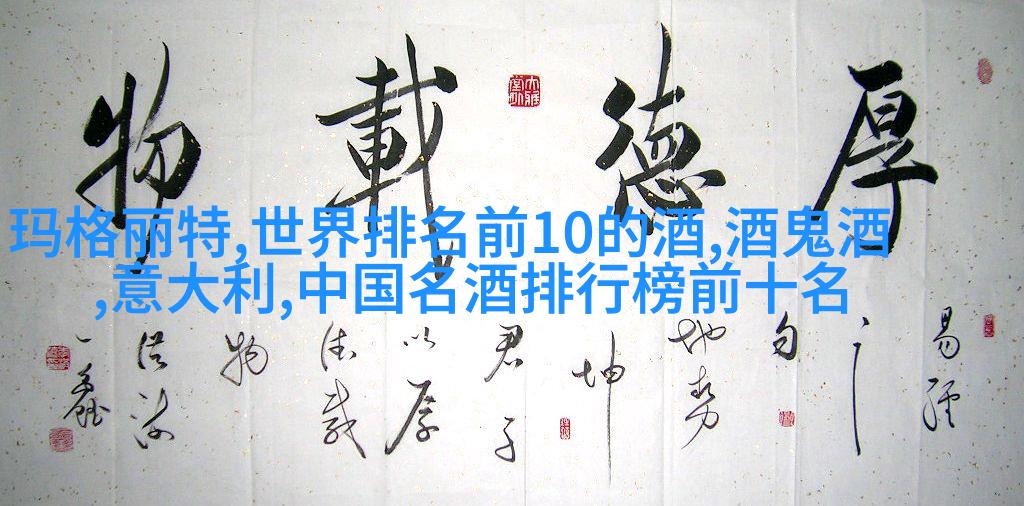 厚德載物
玛格丽特,世界排名前10的酒,酒鬼酒
,意大利,中国名酒排行榜前十名
易經
之
句
地勢
坤
君子
以厚
德載
物
一鑫